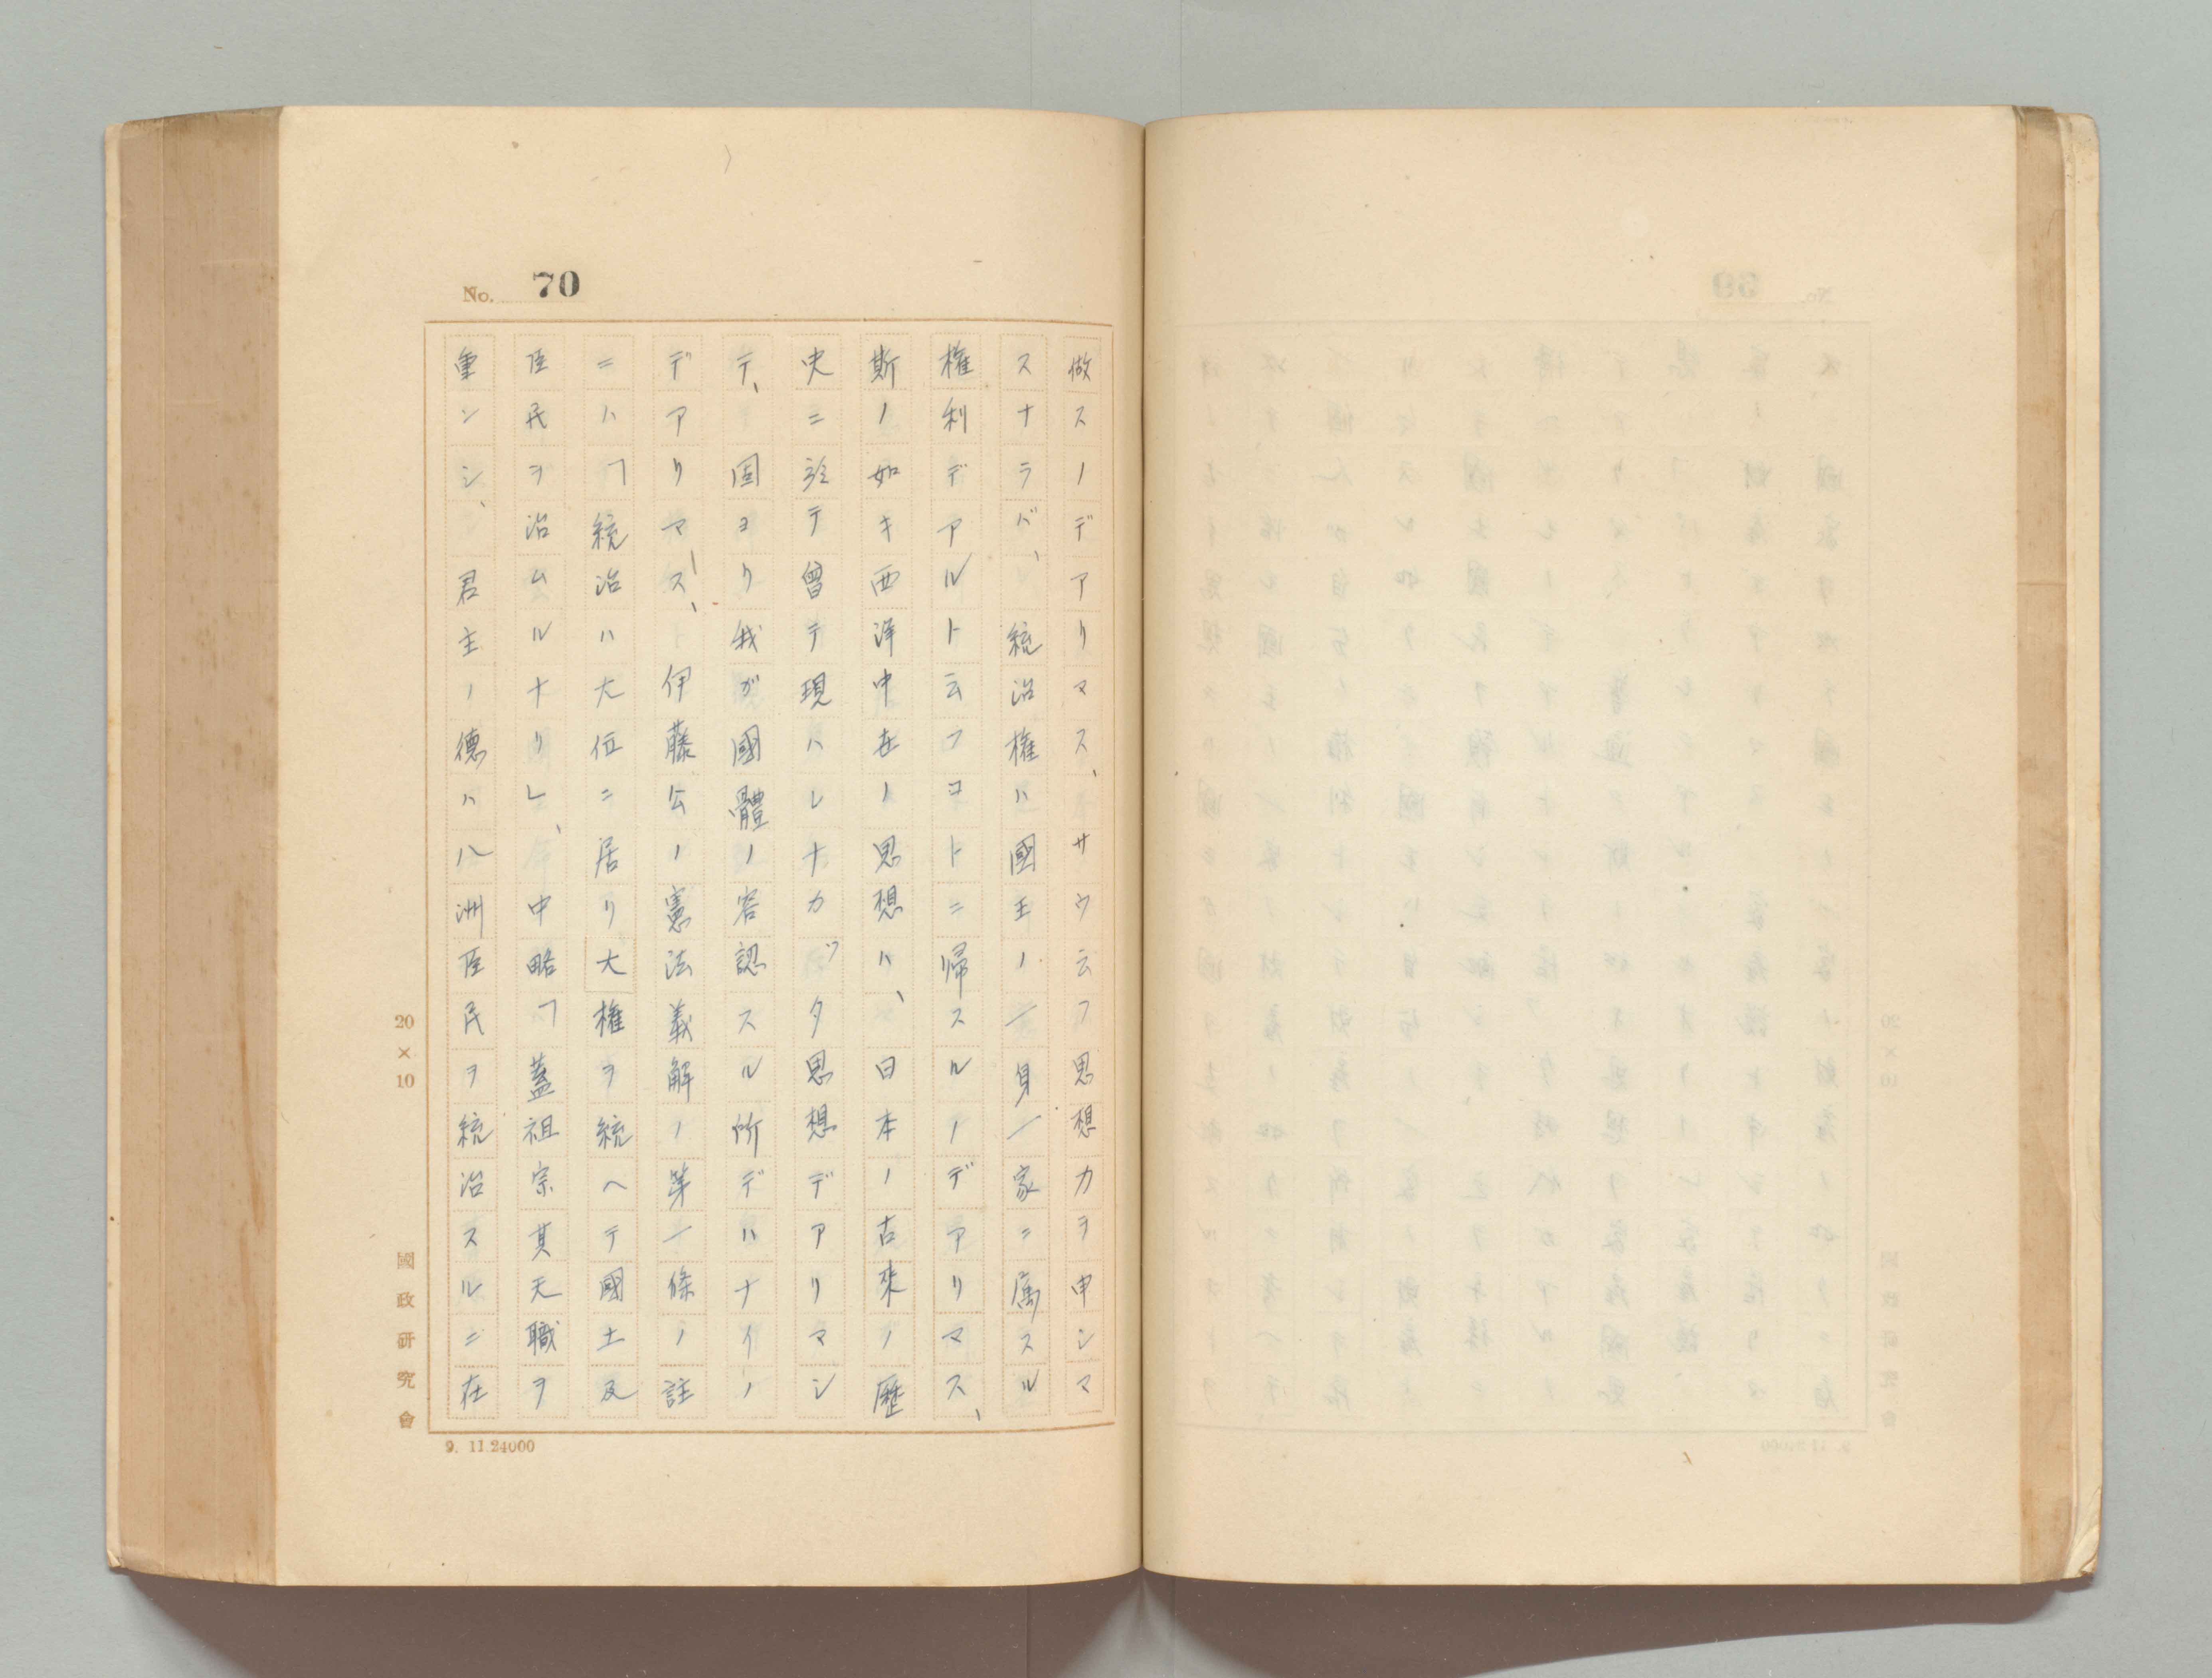 No. 70
做スノデアリマス、サウ云フ思想カヲ申シマ
スナラバ、統治権ハ國王ノ一身一家ニ属スル
権利デアルト云フコトニ帰スルノデアリマス、
斯ノ如キ西洋中世ノ思想ハ、日本ノ古來ノ歴
史ニ於テ曾テ現ハレナカツタ思想デアリマシ
テ、固ヨリ我ガ國體ノ容認スル所デハナイノ
デアリマス、伊藤公ノ憲法義解ノ第一條ノ註
ニハ「統治ハ大位ニ居リ大権ヲ統ヘテ國土及
臣民ヲ治ムルナリ」、中略「蓋祖宗其天職ヲ
重ンシ、君主ノ徳ハ八洲臣民ヲ統治スルニ在
20×10
國政研究會
9. 11.24000